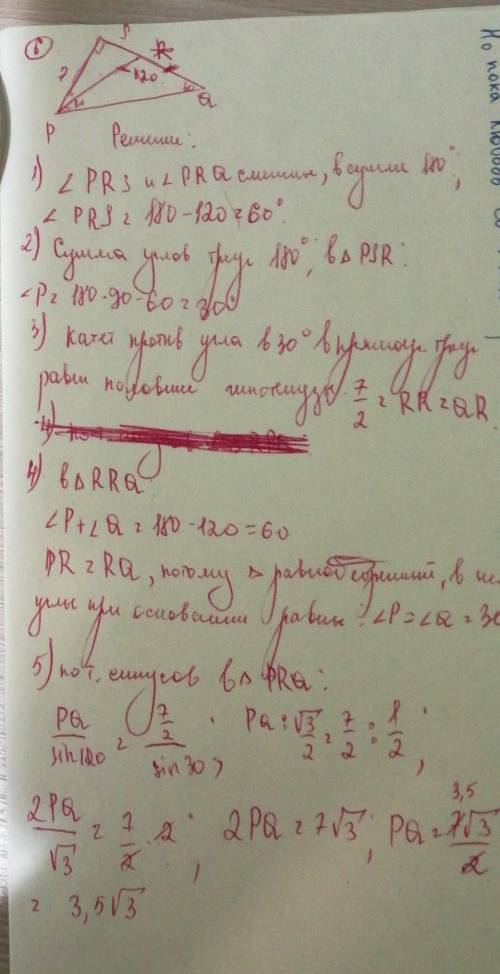 6
S
R
7
120
30
30
Q
P
Решение:
1) ∠PRS и ∠PRQ смежные, в сумме 180°;
∠PRS = 180 - 120 = 60°.
2) Сумма углов треуг 180°, в △PSR:
∠P = 180 - 90 - 60 = 30°
3) Катет против угла в 30° в прямоуг треуг
равен половине гипотенузы. 7/2 = RR = QR.
4)
4) в △RRQ
∠P + ∠Q = 180 - 120 = 60
PR = RQ, потому △ равнобедренный, в нем
углы при основании равны: ∠P = ∠Q = 30
5) по т. синусов в △PRQ:
PQ/sin120 = (7/2)/sin30; PQ : √3/2 = 7/2 : 1/2;
2PQ/√3 = 7/2 · 2; 2PQ = 7√3; PQ = 7√3/2 3,5
= 3,5√3
Но пока